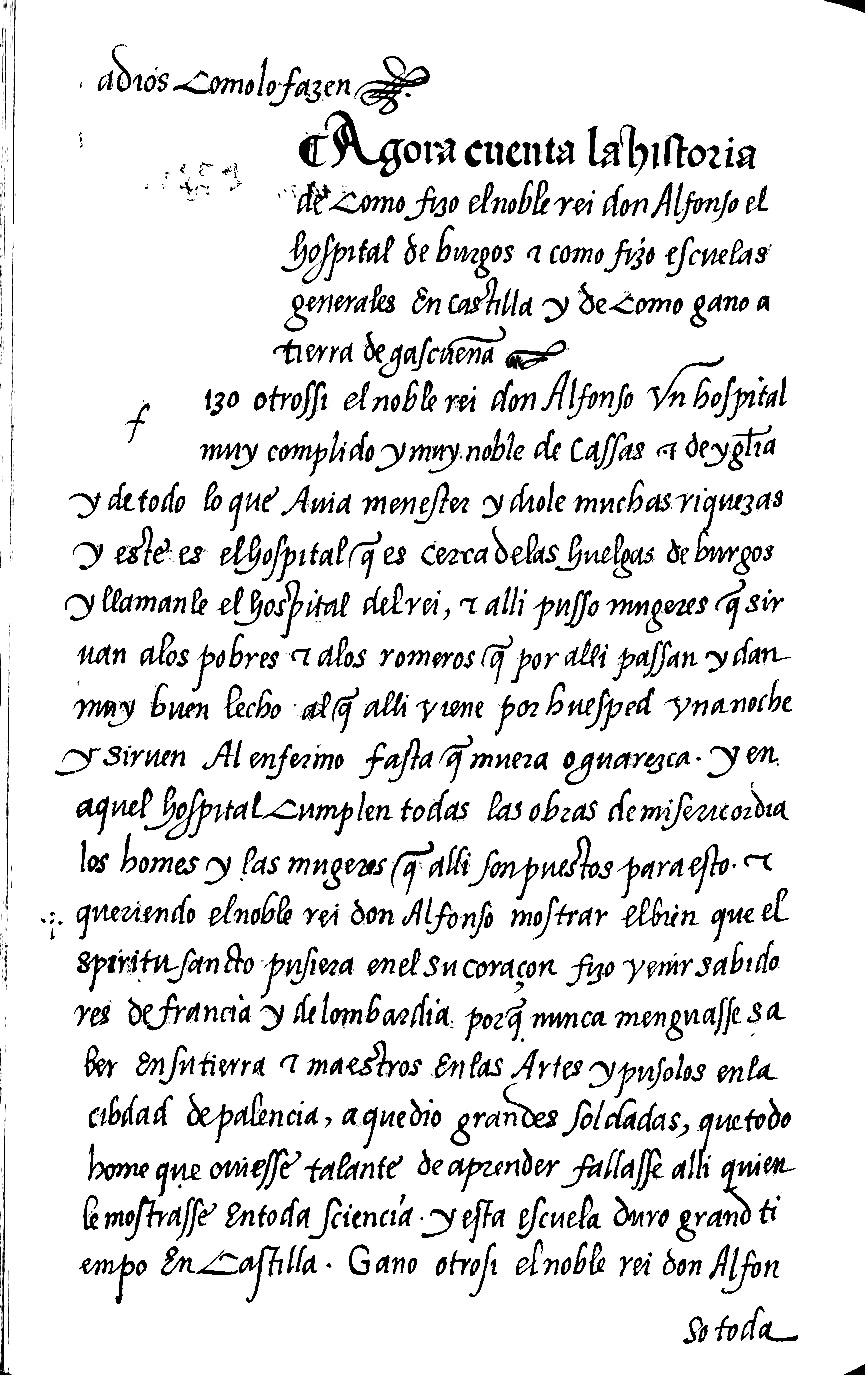 adios como lo fazen
Agora cuenta la historia
de como fizo el noble rei don Alfonso el
hospital de burgos ⁊ como fizo escuelas
generales en castilla y de como gano a
tierra de gascueña
f izo otrossi el noble rei don Alfonso vn hospital
muy complido y muy noble de cassas ⁊ de yglīa
y de todo lo que Auia menester y diole muchas riquezas
y este es el hospital q̃ es cerca de las huelgas de burgos
y llamanle el hospital del rei, ⁊ alli pusso mugeres q̃ sir
uan alos pobres ⁊ alos romeros q̃ por alli passan y dan
muy buen lecho al q̃ alli viene por huesped vna noche
y siruen Al enfermo fasta q̃ muera o guarezca. y en
aquel hospital cumplen todas las obras de misericordia
los homes y las mugeres q̃ alli son puestos para esto. ⁊
queriendo el noble rei don Alfonso mostrar el bien que el
spiritu sancto pusiera en el su coraçon fizo venir sabido
res de francia y de lombardia porq̃ nunca menguasse sa
ber en su tierra ⁊ maestros en las Artes y pusolos en la
cibdad de palencia, a que dio grandes soldadas, que todo
home que ouiesse talante de aprender fallasse alli quien
le mostrasse en toda sciencia. y esta escuela duro grand ti
empo en castilla. Gano otrosi el noble rei don Alfon
so toda